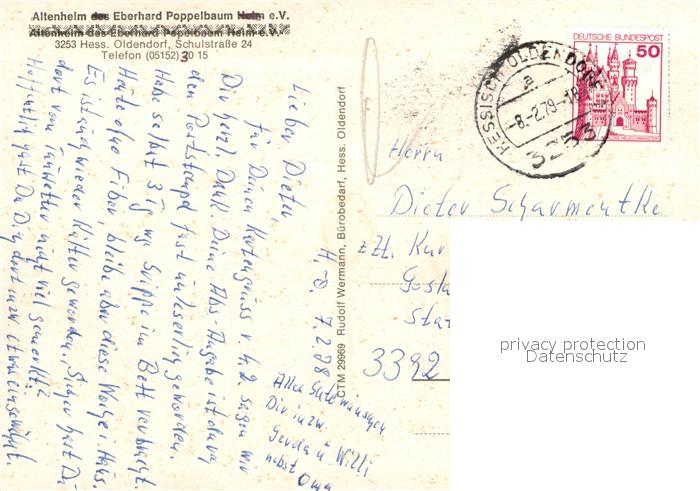 Altenheim des Eberhard Poppelbaum Heim e.V.
Altenheim des Eberhard Popelbaum Heim e.V.
3253 Hess. Oldendorf, Schulstraße 24
Telefon (05152) 30 15
H.O. 7.2.79
Lieber Dieter,
für Deinen Kartengruss v. 4.2. sagen wir
Dir herzl. Dank. Deine Abs-Angabe ist durch
den Poststempel fast unleserlig geworden.
Habe selbst 3 Tg wg Grippe im Bett verbracht.
Heute ohne Fieber, bleibe aber diese Woche i. Haus.
Es ist auch wieder kälter geworden. Sicher hast Du
dort vom Unwetter nicht viel gemerkt?
Hoffentlich hast Du Dich dort inzw. etwas eingewöhnt.
Alles Gute wünschen
Dir inzw.
Gerda u. Willi
nebst Oma
CTM 29969 Rudolf Wermann, Bürobedarf, Hess. Oldendorf
DEUTSCHE BUNDESPOST
50
HESSISCH OLDENDORF
a
-8.-2.79.-18
3253
Herrn
Dieter Scharmentke
zZt. Kur
3392
privacy protection
Datenschutz